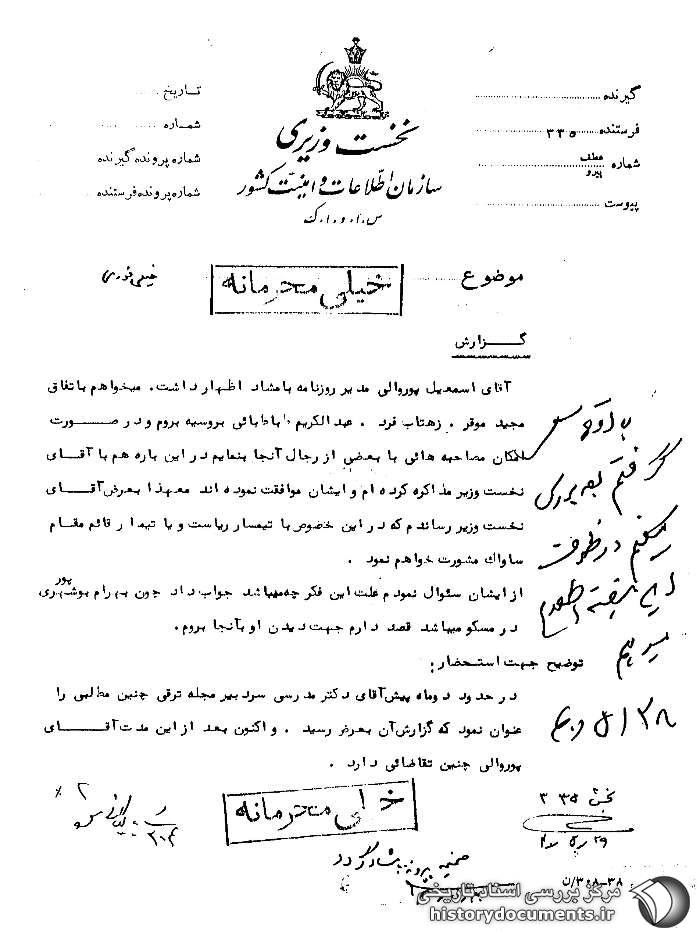 نخست وزیری
سازمان اطلاعات و امنیت کشور
س.ا.و.ا.ک
گیرنده
فرستنده ۳۳۵
شماره عطف پیرو
پیوست
تاریخ
شماره
شماره پرونده گیرنده
شماره پرونده فرستنده
موضوع
خیلی محرمانه
خیلی فوری
گزارش
آقای اسمعیل پوروالی مدیر روزنامه بامشاد اظهار داشت. میخواهم باتفاق
مجید موقر . زهتاب فرد . عبدالکریم طباطبائی بروسیه بروم و در صورت
امکان مصاحبه هائی با بعضی از رجال آنجا بنمایم در این باره هم با آقای
نخست وزیر مذاکره کرده ام و ایشان موافقت نموده اند معهذا بعرض آقای
نخست وزیر رساندم که در این خصوص با تیمسار ریاست و یا تیمسار قائم مقام
ساواک مشورت خواهم نمود .
از ایشان سئوال نمودم علت این فکر چه میباشد جواب داد چون بهرام بوشهری پور
در مسکو میباشد قصد دارم جهت دیدن او بآنجا بروم.
توضیح جهت استحضار:
در حدود دوماه پیش آقای دکتر مدرسی سردبیر مجله ترقی چنین مطالبی را
عنوان نمود که گزارش آن بعرض رسید . و اکنون بعد از این مدت آقای
پوروالی چنین تقاضائی دارد .
گرفتم
میدهیم
خیلی محرمانه
بخش ۳۳۵
ضمیمه پرونده بشادگردد
۳۸-۳۰۸/ن
مرکز بررسی اسناد تاریخی
historydocuments.ir